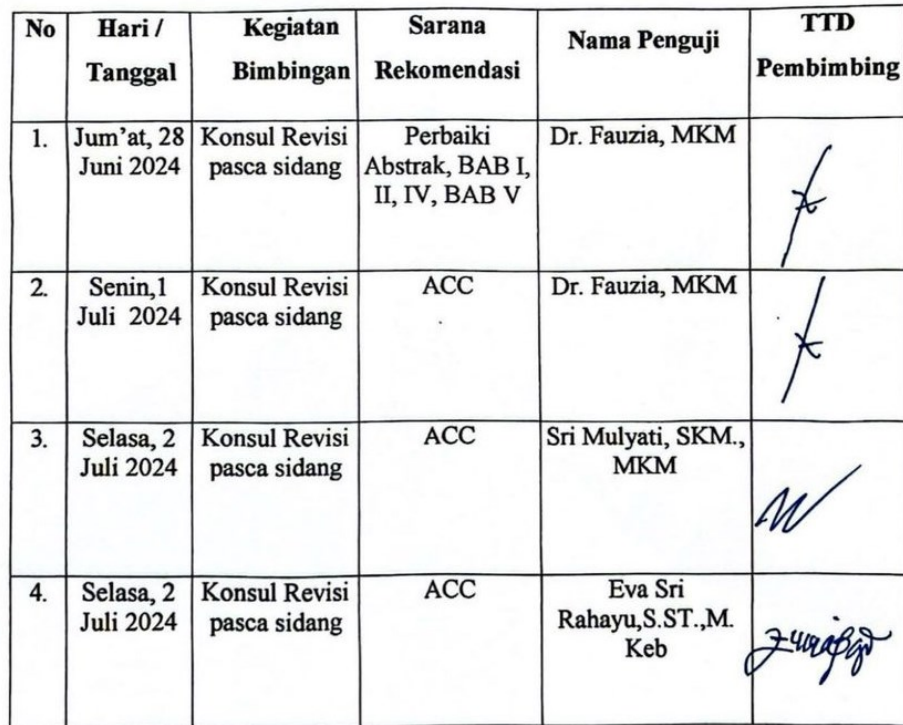 No
Hari /
Tanggal
Kegiatan
Bimbingan
Sarana
Rekomendasi
Nama Penguji
TTD
Pembimbing
1.
Jum'at, 28
Juni 2024
Konsul Revisi
pasca sidang
Perbaiki
Abstrak, BAB I,
II, IV, BAB V
Dr. Fauzia, MKM
2.
Senin,1
Juli 2024
Konsul Revisi
pasca sidang
ACC
Dr. Fauzia, MKM
3.
Selasa, 2
Juli 2024
Konsul Revisi
pasca sidang
ACC
Sri Mulyati, SKM.,
MKM
4.
Selasa, 2
Juli 2024
Konsul Revisi
pasca sidang
ACC
Eva Sri
Rahayu,S.ST.,M.
Keb